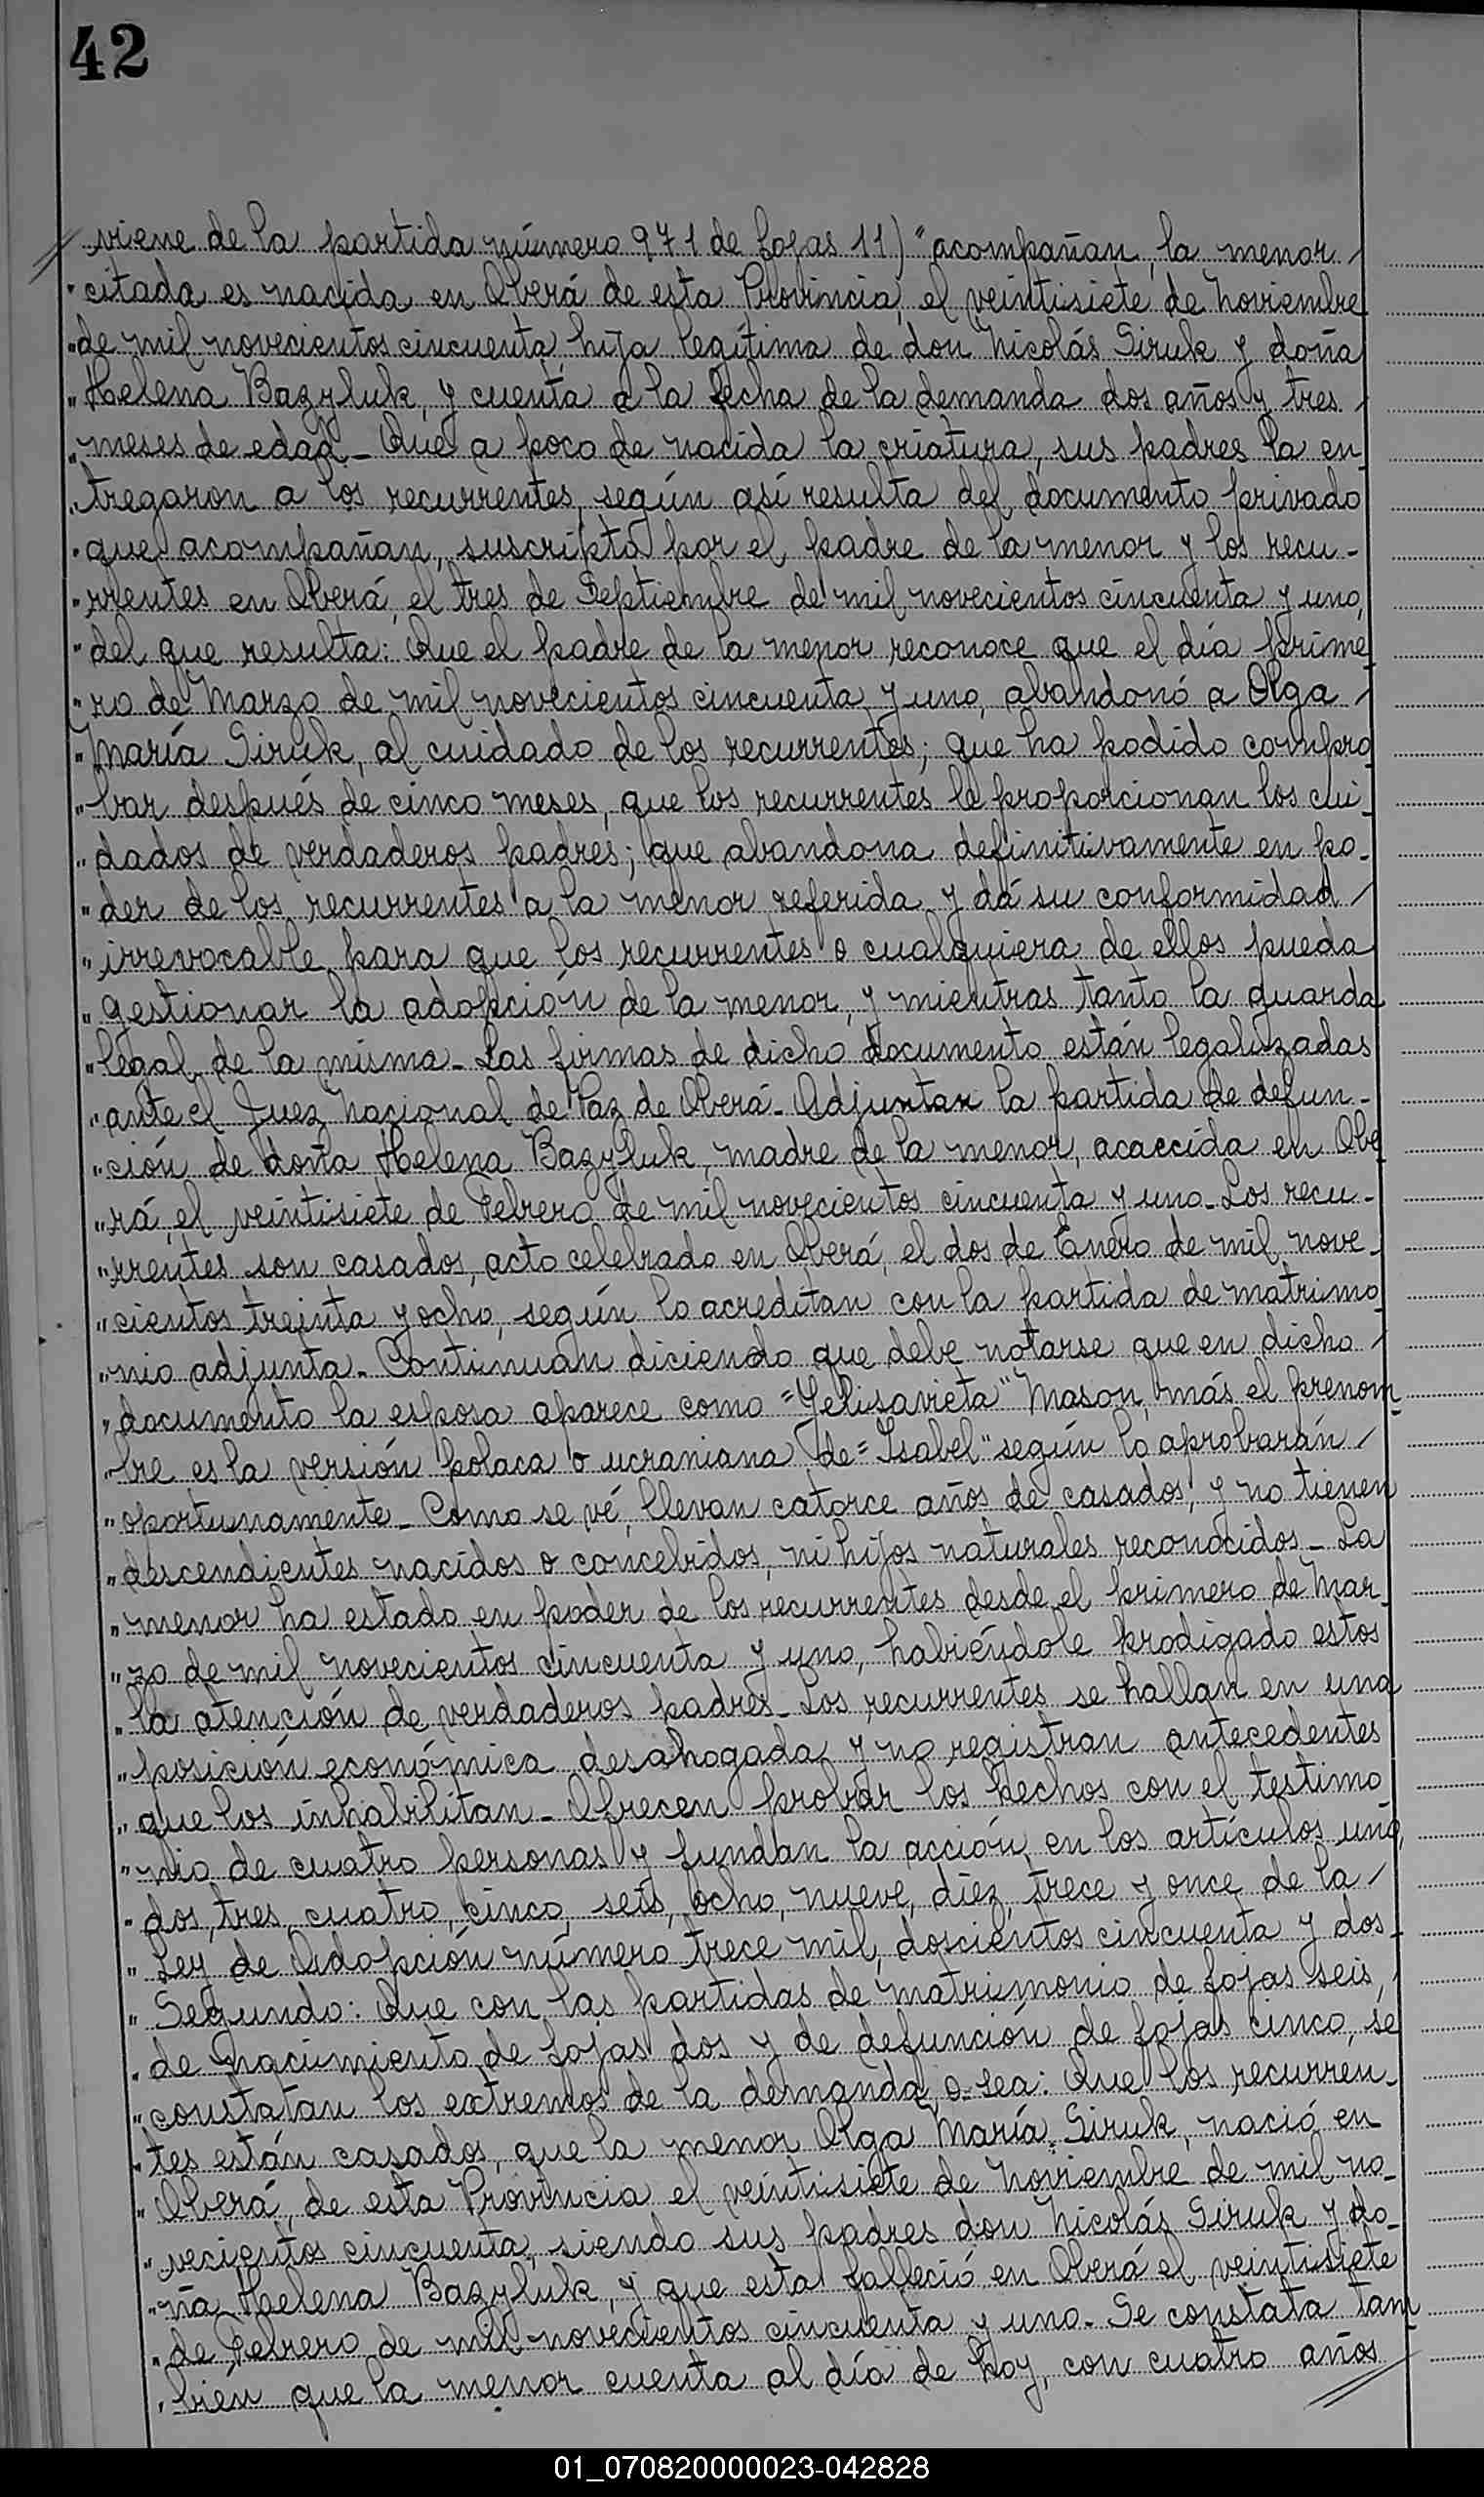 42
viene de la partida número 971 de fojas 11) "acompañan, la menor /
"citada es nacida en Oberá de esta Provincia, el veintisiete de Noviembre
"de mil novecientos cincuenta, hija legítima de don Nicolás Siruk y doña
"Helena Bazyluk, y cuenta a la fecha de la demanda dos años y tres /
"meses de edad_ Que a poco de nacida la criatura, sus padres la en
"tregaron a los recurrentes, según así resulta del documento privado
"que acompañan, suscripto por el padre de la menor y los recu-
"rrentes en Oberá, el tres de Septiembre de mil novecientos cincuenta y uno,
"del que resulta: Que el padre de la menor reconoce que el día prime
"ro de Marzo de mil novecientos cincuenta y uno, abandonó a Olga /
"María Siruk, al cuidado de los recurrentes; que ha podido compro
"bar después de cinco meses, que los recurrentes le proporcionan los cui_
"dados de verdaderos padres; que abandona definitivamente en po_
"der de los recurrentes a la menor referida y dá su conformidad /
"irrevocable para que los recurrentes o cualquiera de ellos pueda
"gestionar la adopción de la menor, y mientras tanto la guarda
"legal de la misma_ Las firmas de dicho documento están legalizadas
"ante el Juez Nacional de Paz de Oberá_ Adjuntan la partida de defun_
"ción de doña Helena Bazyluk, madre de la menor, acaecida en Obe
"rá, el veintisiete de Febrero de mil novecientos cincuenta y uno_ Los recu_
"rrentes son casados, acto celebrado en Oberá, el dos de Enero de mil nove_
"cientos treinta y ocho, según lo acreditan con la partida de matrimo_
"nio adjunta_ Continuan diciendo que debe notarse que en dicho /
"documento la esposa aparece como "Yelisavieta" Mason, más el prenom_
"bre es la versión polaca o ucraniana de "Isabel" según lo aprobarán /
"oportunamente_ Como se vé, llevan catorce años de casados, y no tienen
"descendientes nacidos o concebidos, ni hijos naturales reconocidos_ La
"menor ha estado en poder de los recurrentes desde el primero de Mar_
"zo de mil novecientos cincuenta y uno, habiéndole prodigado estos
"la atención de verdaderos padres_ Los recurrentes se hallan en una
"posición económica desahogada y no registran antecedentes
"que los inhabilitan_ Ofrecen probar los hechos con el testimo_
"nio de cuatro personas y fundan la acción en los artículos uno,
"dos, tres, cuatro, cinco, seis, ocho, nueve, diez, trece y once de la /
"Ley de Adopción número trece mil, doscientos cincuenta y dos_
"Segundo: Que con las partidas de matrimonio de fojas seis, /
"de nacimiento de fojas dos y de defunción de fojas cinco, se
"constatan los extremos de la demanda, o sea: Que los recurren_
"tes están casados, que la menor Olga María Siruk, nació en
"Oberá, de esta Provincia el veintisiete de Noviembre de mil no_
"vecientos cincuenta, siendo sus padres don Nicolás Siruk y do_
"ña Helena Bazyluk, y que esta falleció en Oberá el veintisiete
"de Febrero de mil novecientos cincuenta y uno_ Se constata tam_
"bién que la menor cuenta al día de hoy, con cuatro años
01_070820000023-042828